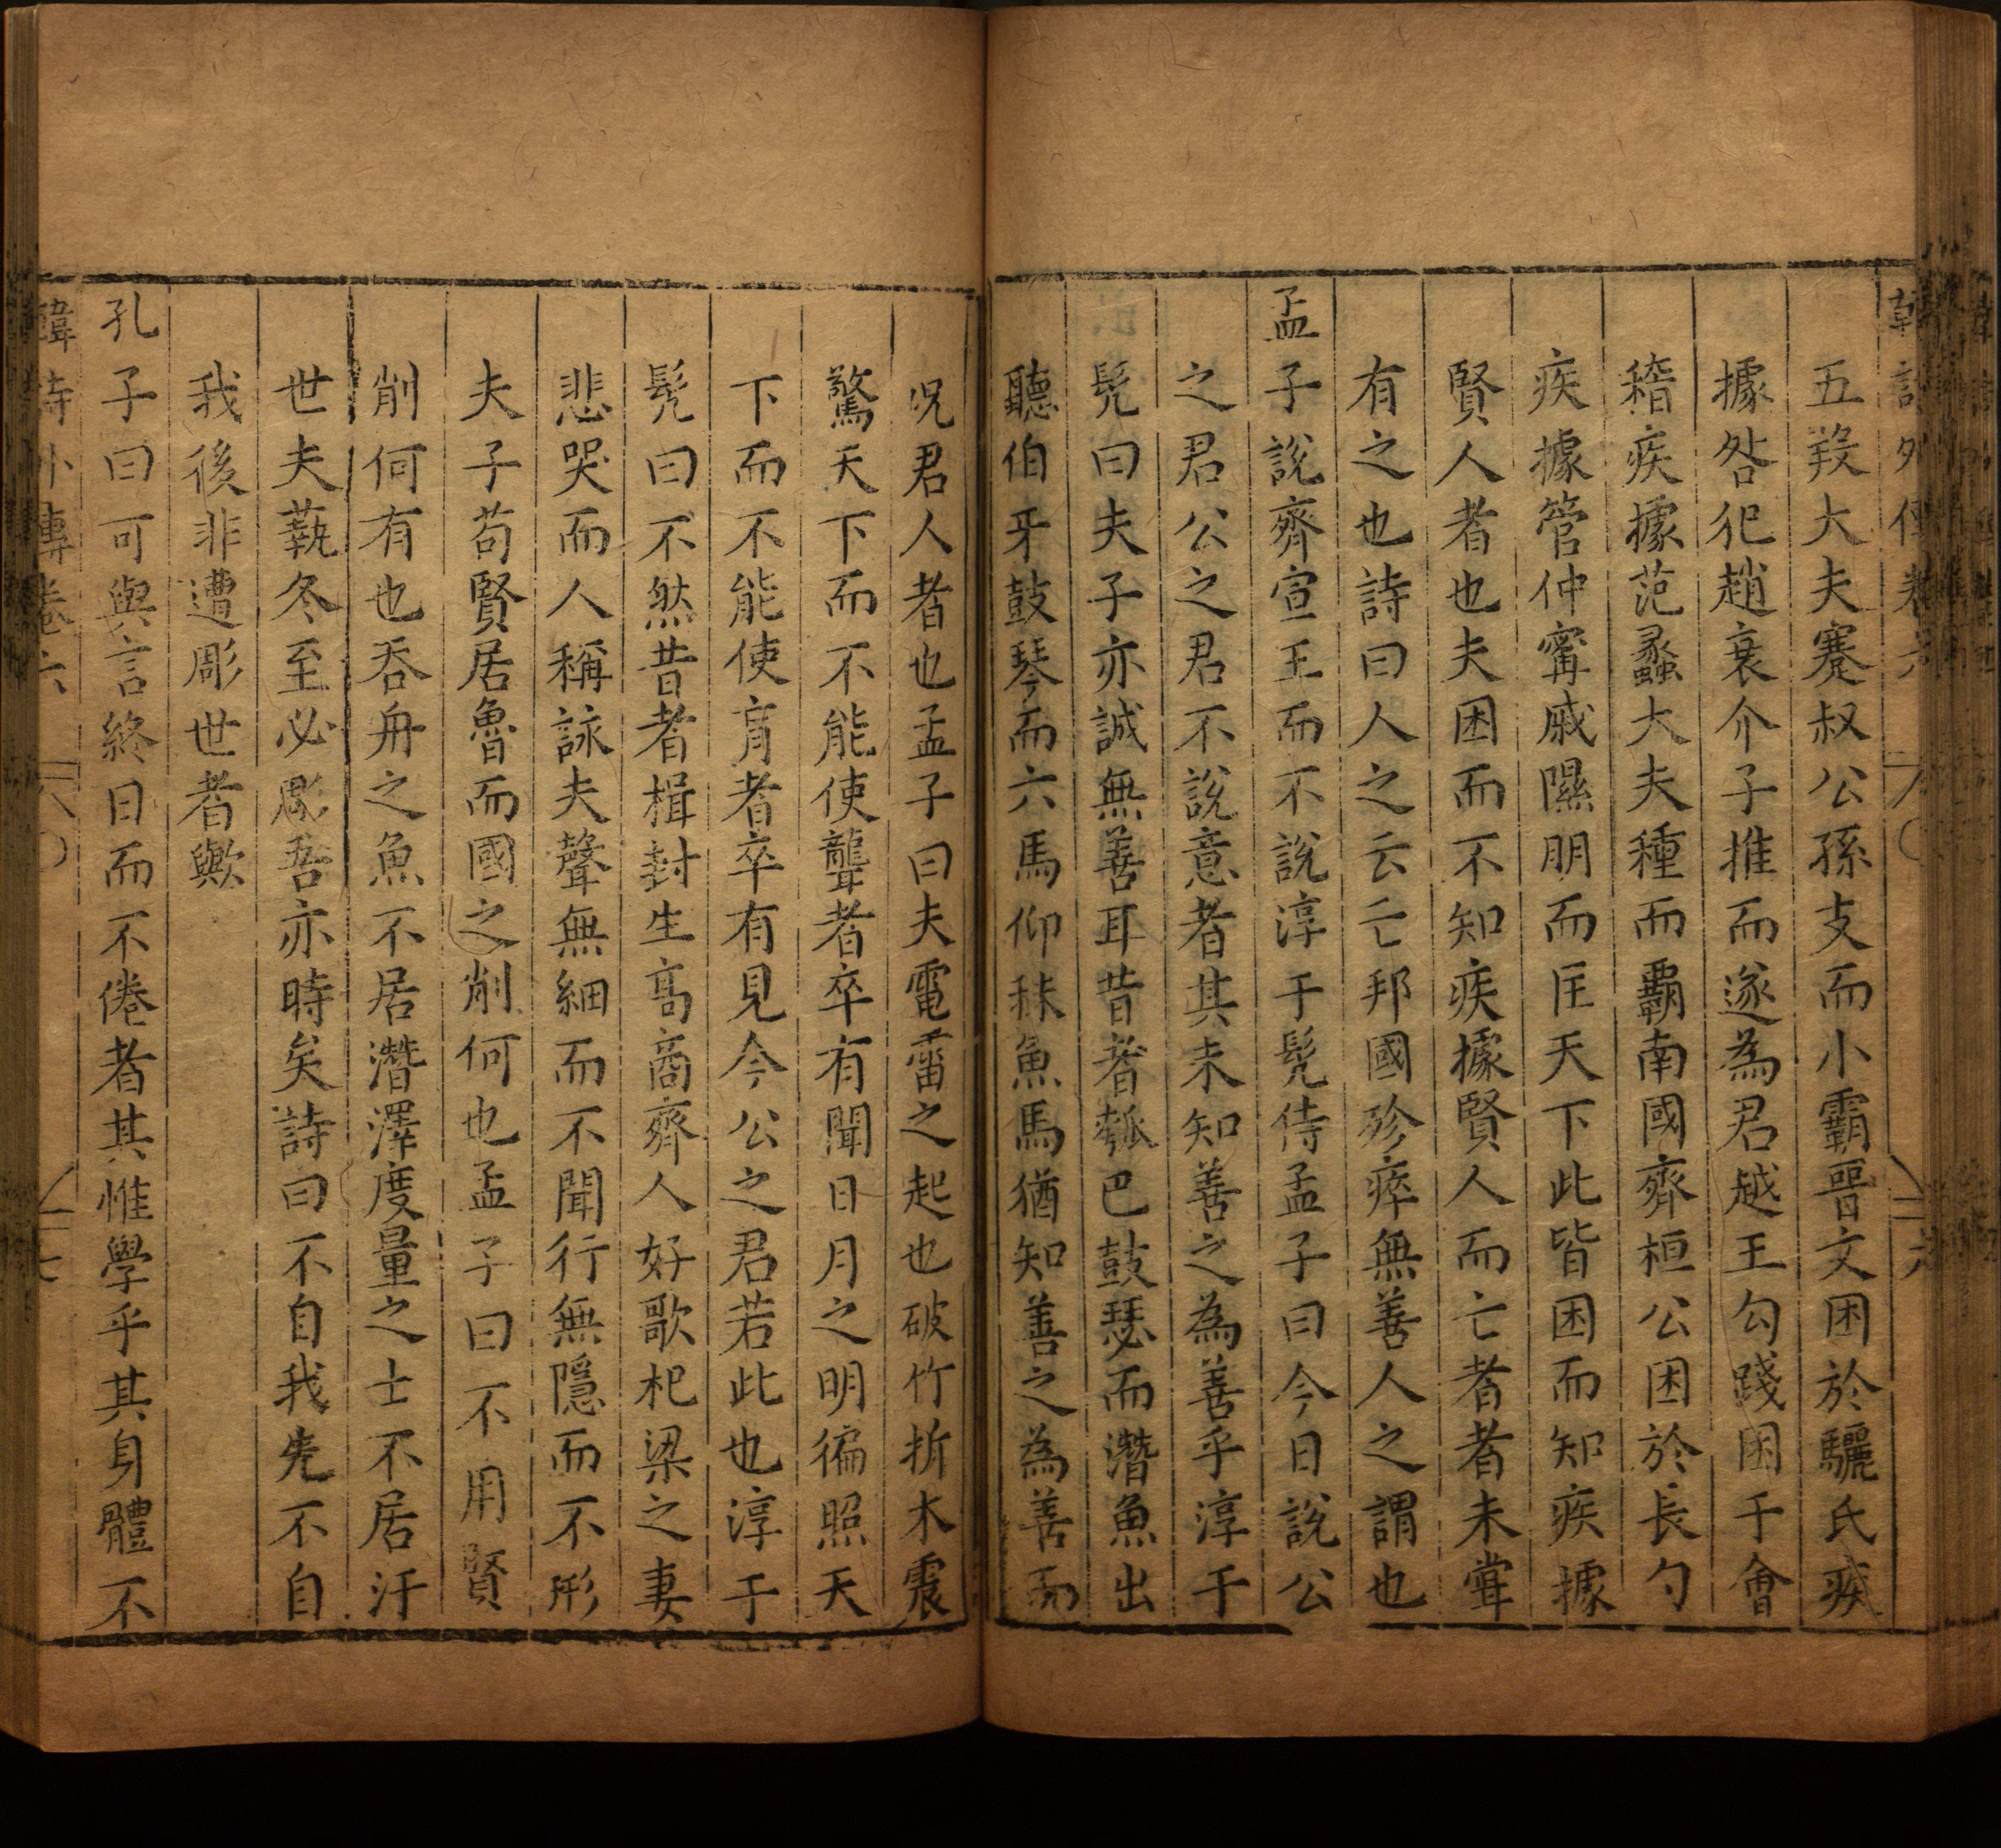 五羖大夫蹇叔公孫支而小霸晉文困於驪氏疾
據咎犯趙衰介子推而遂為君越王勾踐困于會
稽疾據范蠡大夫種而覇南國齊桓公困於長勺
疾據管仲甯戚隰朋而匡天下此皆困而知疾據
賢人者也夫困而不知疾據賢人而亡者者未甞
有之也詩曰人之云亡邦國殄瘁無善人之謂也
孟子說齊宣王而不說淳于髠侍孟子曰今日說公
之君公之君不說意者其未知善之為善乎淳于
髠曰夫子亦誠無善耳昔者瓠巴鼓瑟而潛魚出
聽伯牙鼓琴而六馬仰秣魚馬猶知善之為善而
况君人者也孟子曰夫電雷之起也破竹折木震
驚天下而不能使聾者卒有聞日月之明徧照天
下而不能使盲者卒有見今公之君若此也淳于
髠曰不然昔者揖封生高商齊人好歌杞梁之妻
悲哭而人稱詠夫聲無細而不聞行無隱而不形
夫子苟賢居魯而國之削何也孟子曰不用賢
削何有也吞舟之魚不居潛澤度量之士不居汙
世夫蓺冬至必彫吾亦時矣詩曰不自我先不自
我後非遭彫世者歟
孔子曰可與言終日而不倦者其惟學乎其身體不
韓詩外傳卷六